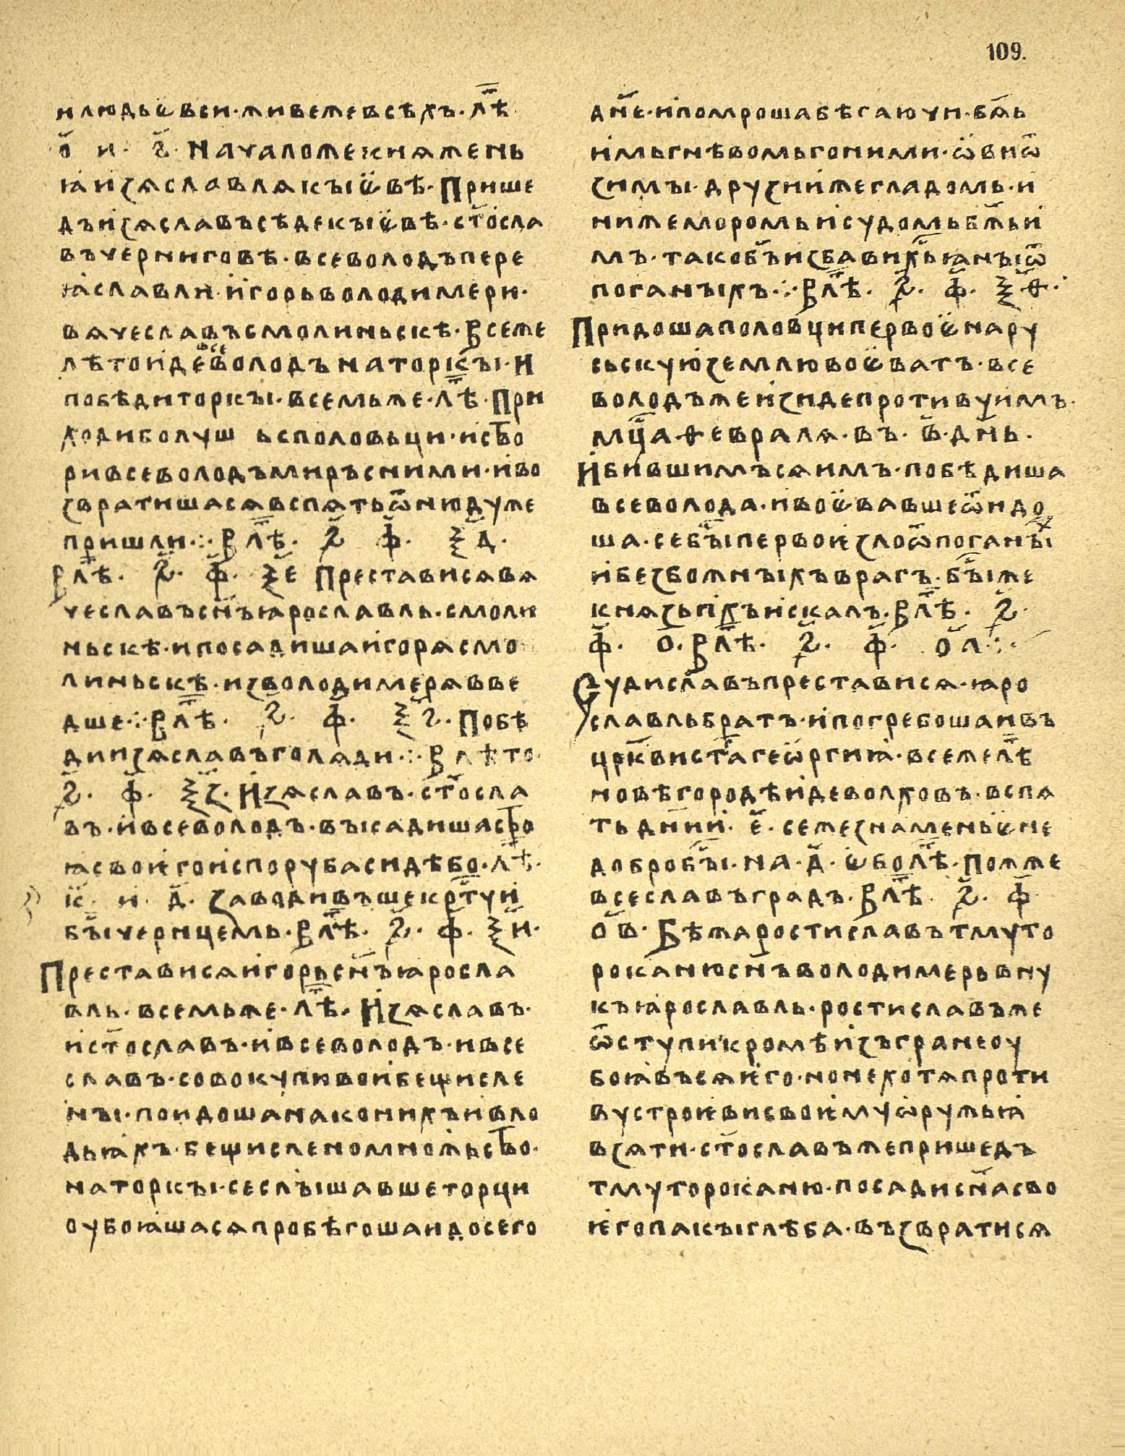 109.
илюдьѥвси·живежевсѣхъ·лѣ҃т
о҃ и· г҃ Началоложекнѧжень
ꙗизѧславлѧкыѥвѣ·Прише
дъизѧславъсѣдекыѥвѣ·ст҃осла
въчерниговѣ·всеволодъпере
ꙗславли·игорьволодимери·
вѧчеславъсмолиньскѣ·Всеже
лѣтоидевсеволодънаторкꙑ·И
побѣдиторкꙑ·всемьже·лѣ҃т·При
ходиболуш ьсполовьци·исътво
ривсеволодъмиръсними·иво
звратишасѧвспѧтьѿнюдуже
пришли·:·Влѣ҃т· ҂ѕ҃ ф҃· ѯ҃д·
Влѣ҃т· ҂ѕ҃· ф҃· ѯ҃е Престависѧвѧ
чеславъсн҃ъꙗрославль·смоли
ньскѣ·ипосадишаигорѧсмо
линьскѣ·изволодимерѧвве
дше·:·Влѣ҃т· ҂ѕ҃· ф҃· ѯ҃ѕ·Побѣ
диизѧславъголѧди·:·Влѣто·
҂ѕ҃· ф҃· ѯ҃з·Изѧславъ·ст҃осла
въ·ивсеволодъ·въсадишастръ
ꙗсвоѥгоиспорубасидѣбо·лѣ҃т·
к҃ и· д҃· Заводивъшекрт҃уи
бꙑ҃черницемь·Влѣ҃т· ҂ѕ҃· ф҃· ѯ҃и·
Престависѧигорьсн҃ъꙗросла
вль·всемьже·лѣ҃т·Изѧславъ·
ист҃ославъ·ивсеволодъ·ивсе
славъ·совокупивоибещисле
нꙑ·поидошанаконихъивло
дьꙗхъ·бещисленомножьство·
наторкꙑ·сеслꙑшавшеторци
оубоꙗшасѧпробѣгошаидосего
дн҃е·ипомрошабѣгаючи·бж҃ь
имьгнѣвомьгоними·ѡвиѿ
зимꙑ·друзиижегладомь·и
нижеморомьисудомьбж҃ьи
мъ·такоб҃ъизбавихрⷭ҇ьꙗнꙑѿ
поганꙑхъ·:·Влѣ҃т· ҂ѕ҃· ф҃· ѯ҃ѳ·
Придошаполовципервоѥнару
ськуюземлювоѥватъ·все
володъжеизидепротивуимъ·
мц҃афевралѧ·въ·в҃·дн҃ь·
Ибившимъсѧимъ·побѣдиша
всеволода·ивоѥвавшеѿидо
ша·себꙑ҃первоезлоѿпоганꙑх
ибезбожнꙑхъврагъ·бꙑ҃же
кнѧзьихъискалъ·Влѣ҃т· ҂ѕ҃·
ф҃· о҃·Влѣ҃т· ҂ѕ҃· ф҃· о҃а·:·
Судиславъпрестависѧ·ꙗро
славльбратъ·ипогребошаивъ
црк҃вист҃агегеѡргиꙗ·всемелѣ҃т
новѣгородѣидеволховъ·вспѧ
тьднии· е҃·сежезнаменьѥне
добробꙑ҃·на·д҃·ѥболѣ҃т·Пожже
всеславъградъ·Влѣ҃т· ҂ѕ҃· ф҃
о҃в·Бѣжаростиславътмуто
роканюсн҃ъволодимерьвну
къꙗрославль·ростиславъже
ѿступикромѣизъгранеоу
боꙗвъсѧѥго·нонехотѧпроти
вустроѥвисвоѥмуѡружьꙗ
взѧти·ст҃ославъжепришедъ
тмутороканю·посадисн҃асво
ѥгопакꙑглѣба·възвратисѧ